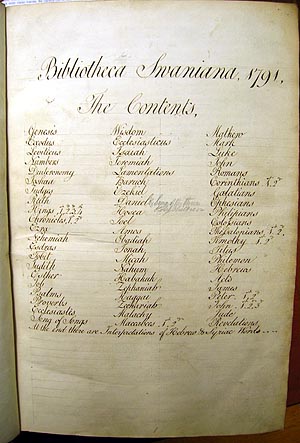 Bibliotheca Swaniana, 1791,
The Contents,
Genesis
Exodus
Leviticus
Numbers
Deuteronomy
Joshua
Judges
Ruth
Kings 1,2,3,4
Chronicles, 1, 2
Ezra
Nehemiah
Esdras
Tobit
Judith
Esther
Job
Psalms
Proverbs
Ecclesiastes
Song of Songs
Wisdom
Ecclesiasticus
Isaiah
Jeremiah
Lamentations
Baruch
Ezekiel
Daniel
Hosea
Joel
Amos
Obadiah
Jonah
Micah
Nahum
Habakuk
Zephaniah
Haggai
Zechariah
Malachy
Macabees 1, 2
Mathew
Mark
Luke
John
Romans
Corinthians 1, 2
Galatians
Ephesians
Philipians
Colossians
Thesalonians, 1, 2
Timothy 1, 2
Titus
Philemon
Hebrews
Acts
James
Peter 1, 2
John 1, 2, 3
Jude
Revelations
At the End there are Interpretations of Hebrew & Syriac Words